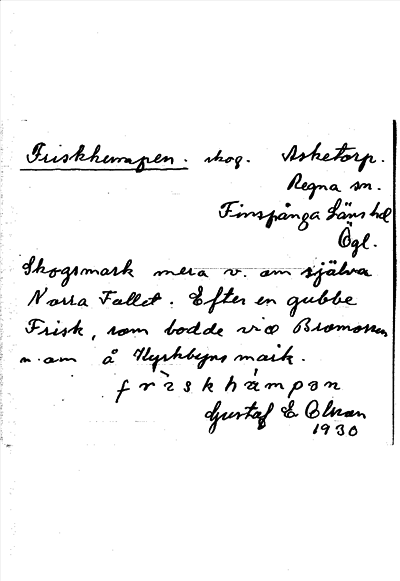 Friskhempen. skog. Asketorp.
Regna sn.
Finspånga läns hd
Ögl.
Skogsmark mera v. om själva
Norra Fallet. Efter en gubbe
Frisk, som bodde vid Bromossen
n. om å Kyrkbyns mark.
Gustaf E Olson
1930